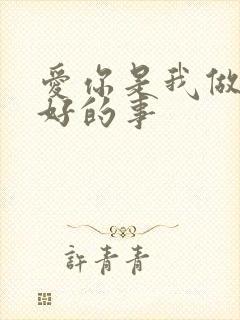 愛你是我做
好的事
許青青